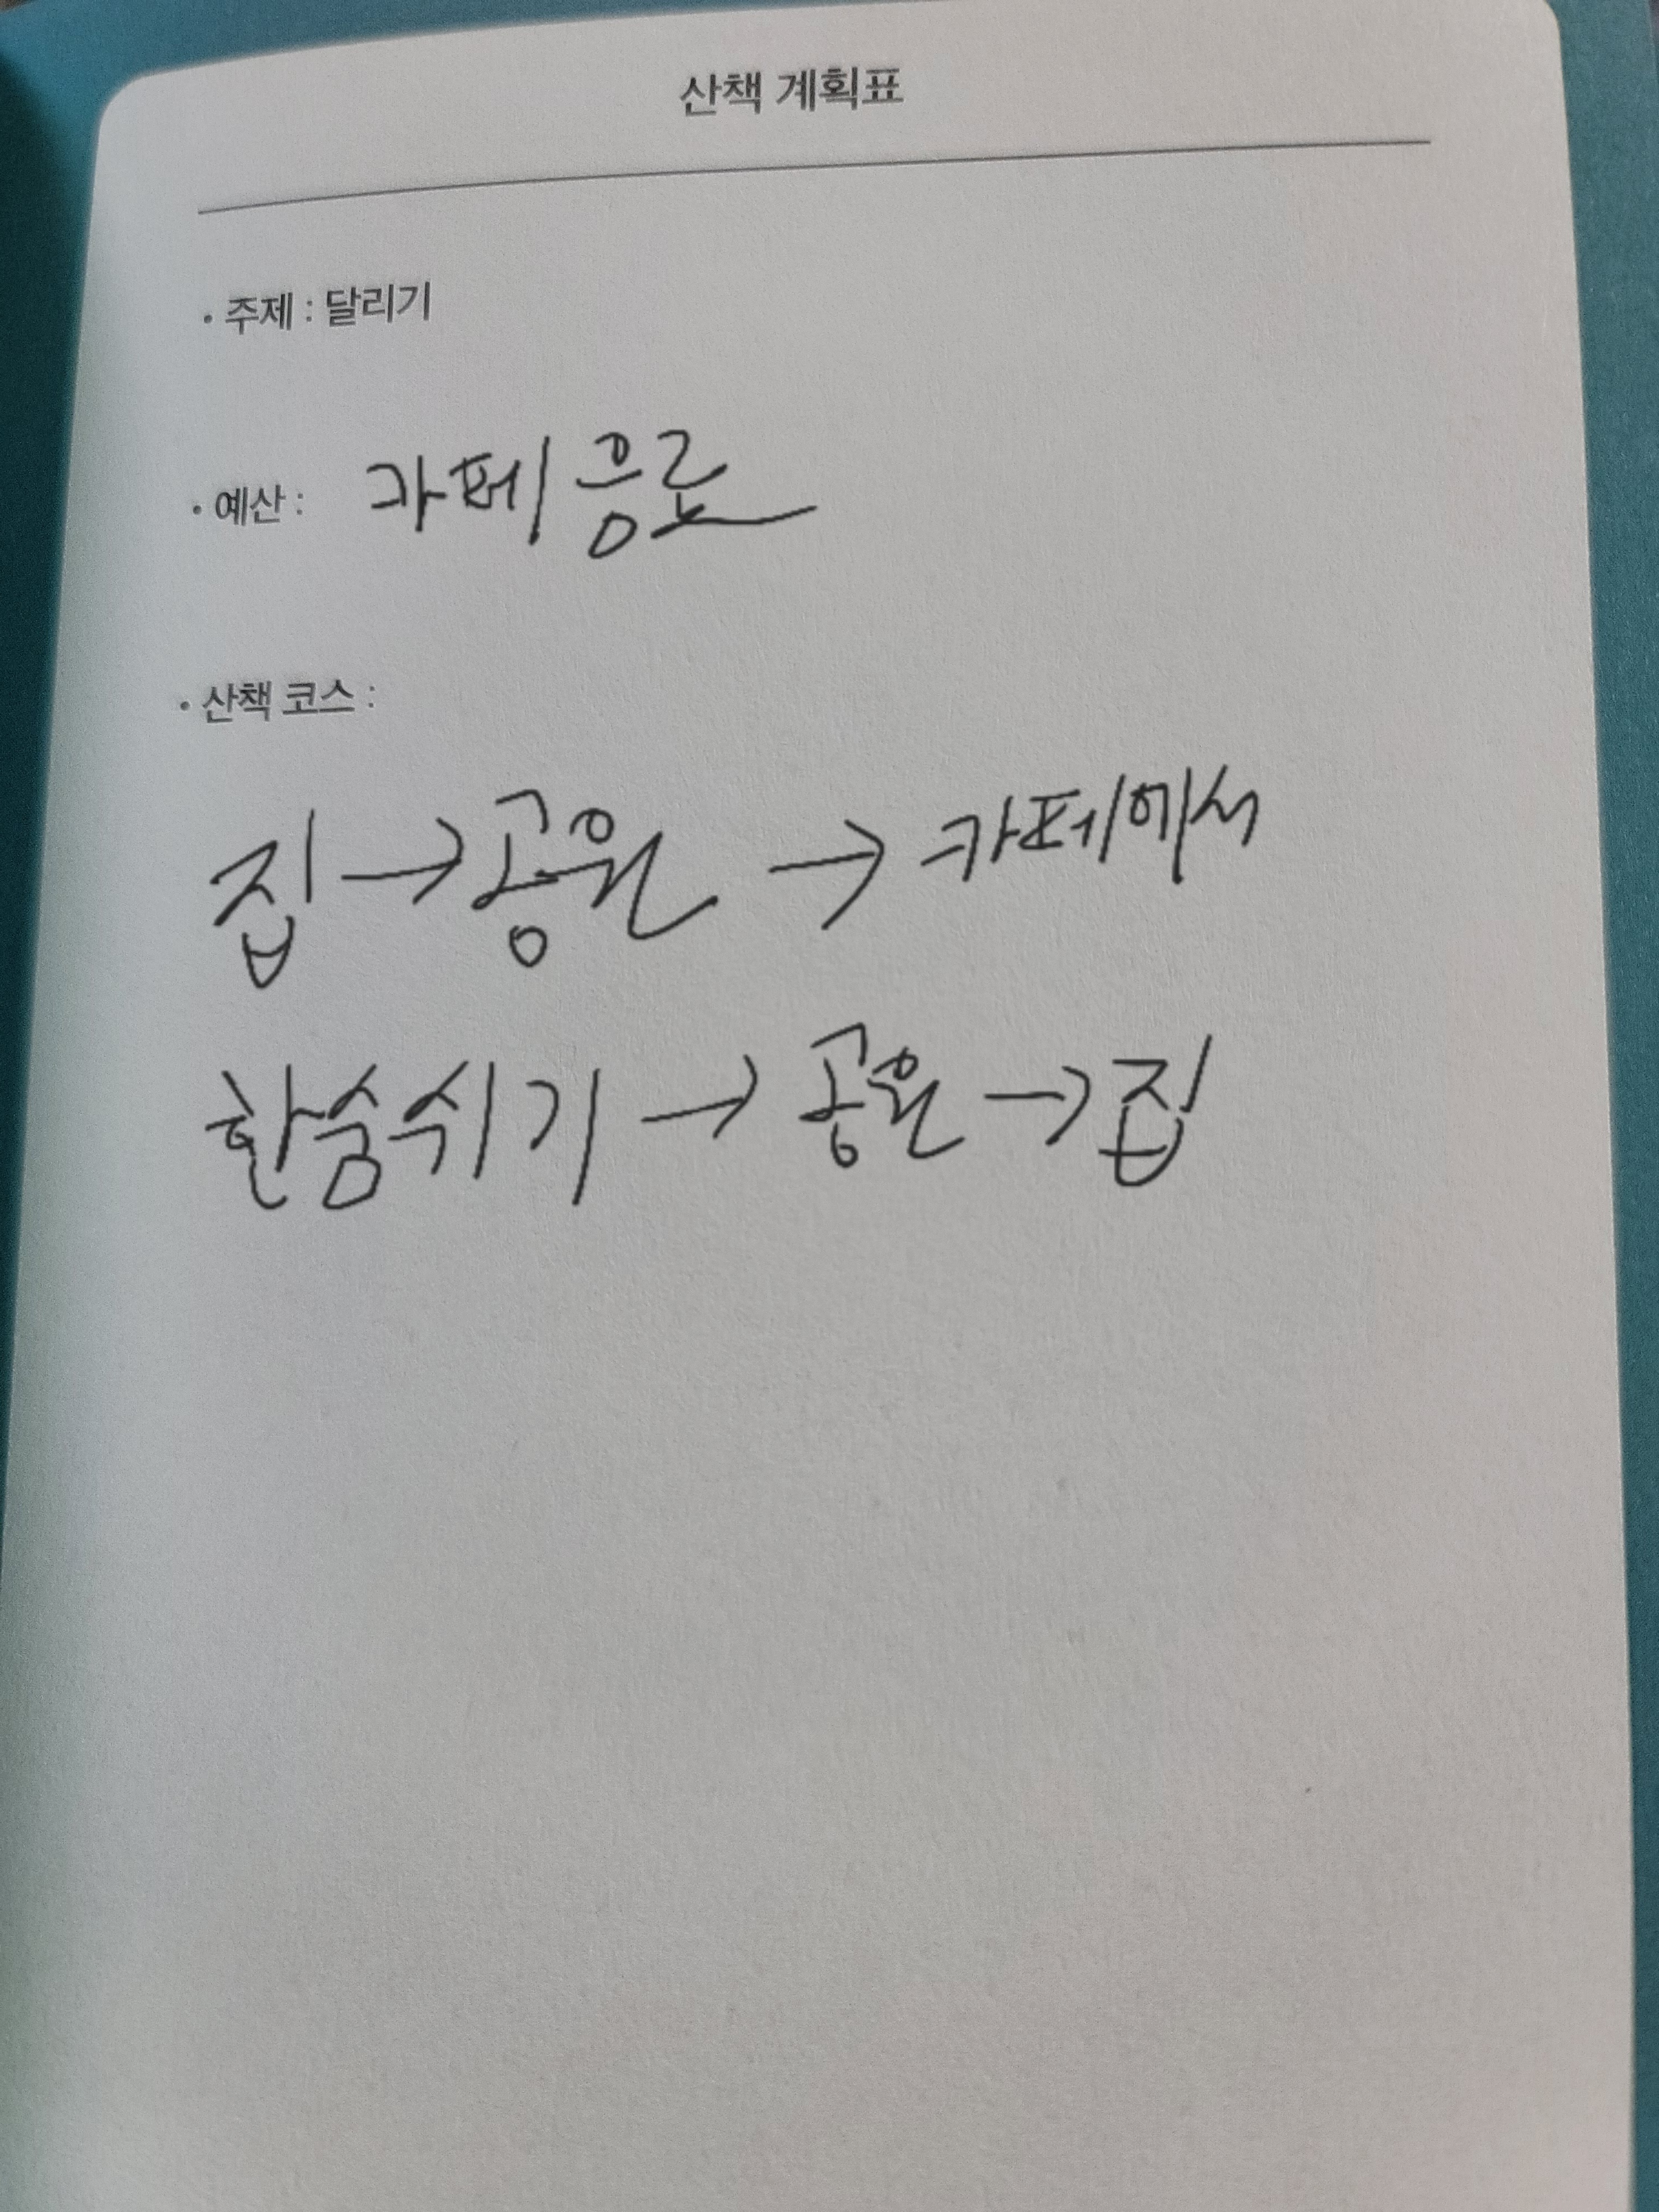 산책 계획표
• 주제 : 달리기
• 예산 : 카페 음료
• 산책 코스 :
집 → 공원 → 카페에서
한숨쉬기 → 공원 → 집